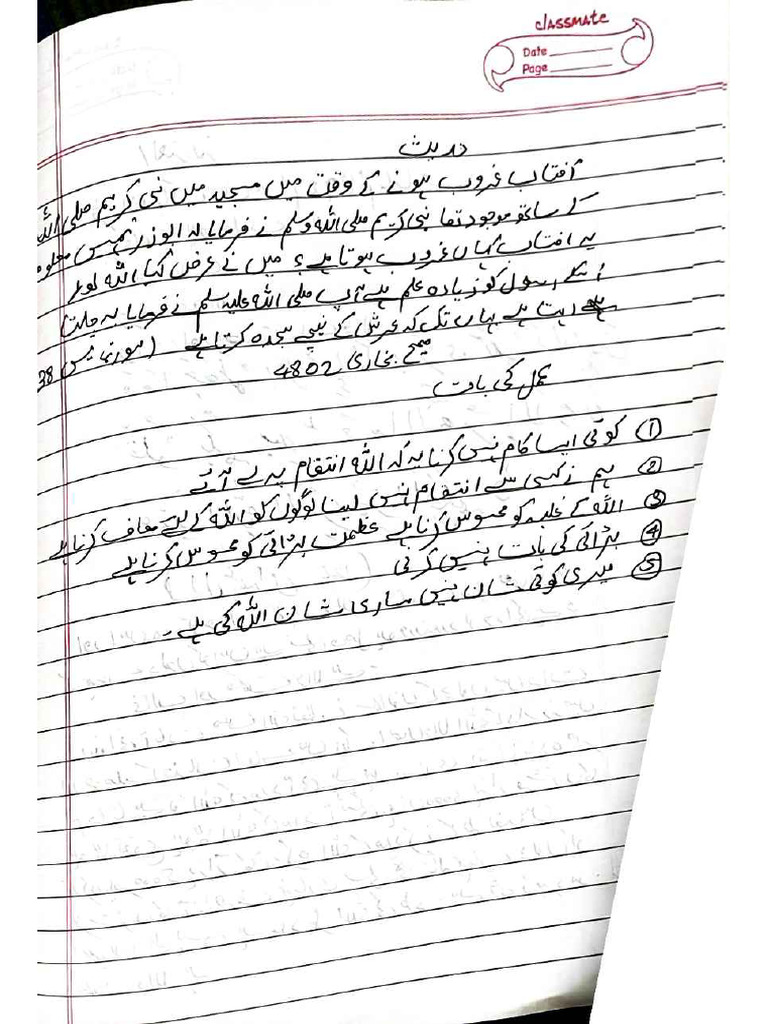 classmate
Date
Page
حدیث
آفتاب غروب ہونے کے وقت میں مسجد میں نبی کریم صلی اللہ
کے ساتھ موجود تھا نبی کریم صلی اللہ وسلم نے فرمایا کہ ابوذر تمہیں معلوم
یہ افتاب کہاں غروب ہوتا ہے؟ میں نے عرض کیا اللہ اور
اسکے رسول کو زیادہ علم ہے آپ صلی اللہ علیہ سلم نے فرمایا یہ چلتا
رہتا ہے یہاں تک کہ عرش کے نیچے سجدہ کرتا ہے (سورۃ یس 38
صحیح بخاری 4802
عمل کی بات
① کوئی ایسا کام نہیں کرنا یہ کہ اللہ انتقام پر لے آئے
② ہم نے کسی سے انتقام نہیں لینا لوگوں کو اللہ کے لئے معاف کرنا ہے
③ اللہ کے غلبہ کو محسوس کرنا ہے عظمت بڑائی کو محسوس کرنا ہے
④ بڑائی کی بات نہیں کرنی
⑤ میری کوئی شان نہیں ساری شان اللہ کی ہے۔